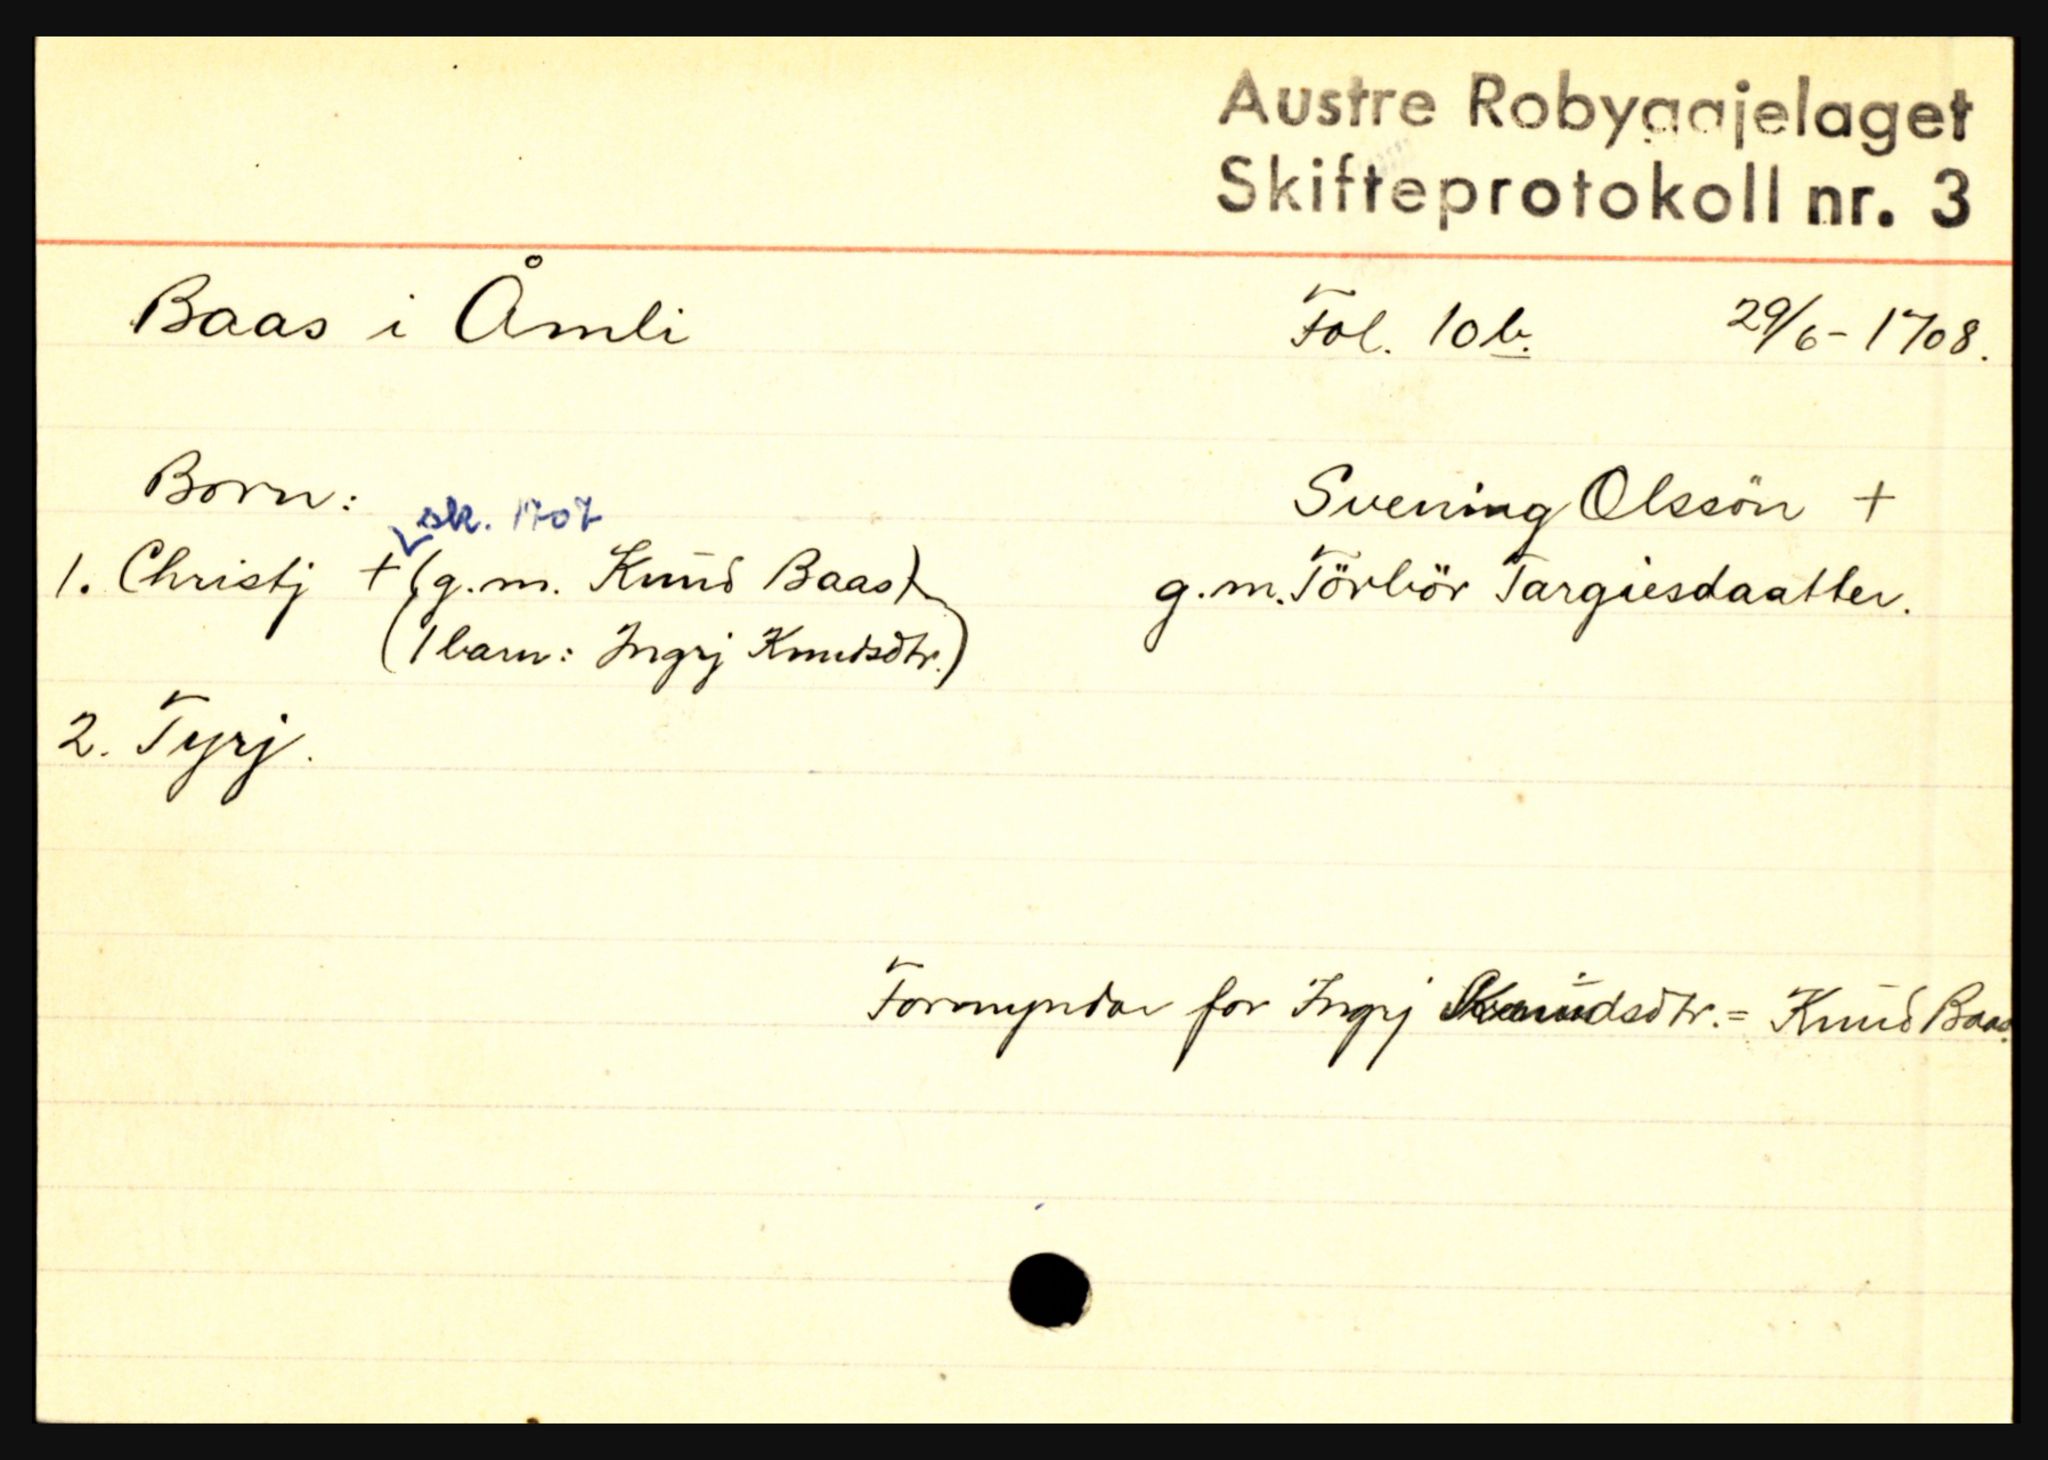 Austre Robyggjelaget
Skifteprotokoll nr. 3
Baas i Åmli Fol. 10b. 29/6-1708.
Born:
Svening Olssön +
sk. 1707
1. Christj + (g.m. Knud Baas)
g.m. Törbör Targiesdaatter.
(1 barn: Ingrj Knudsdtr.)
2. Tyrj.
Formyndar for Ingrj Knudsdtr. = Knud Baas.